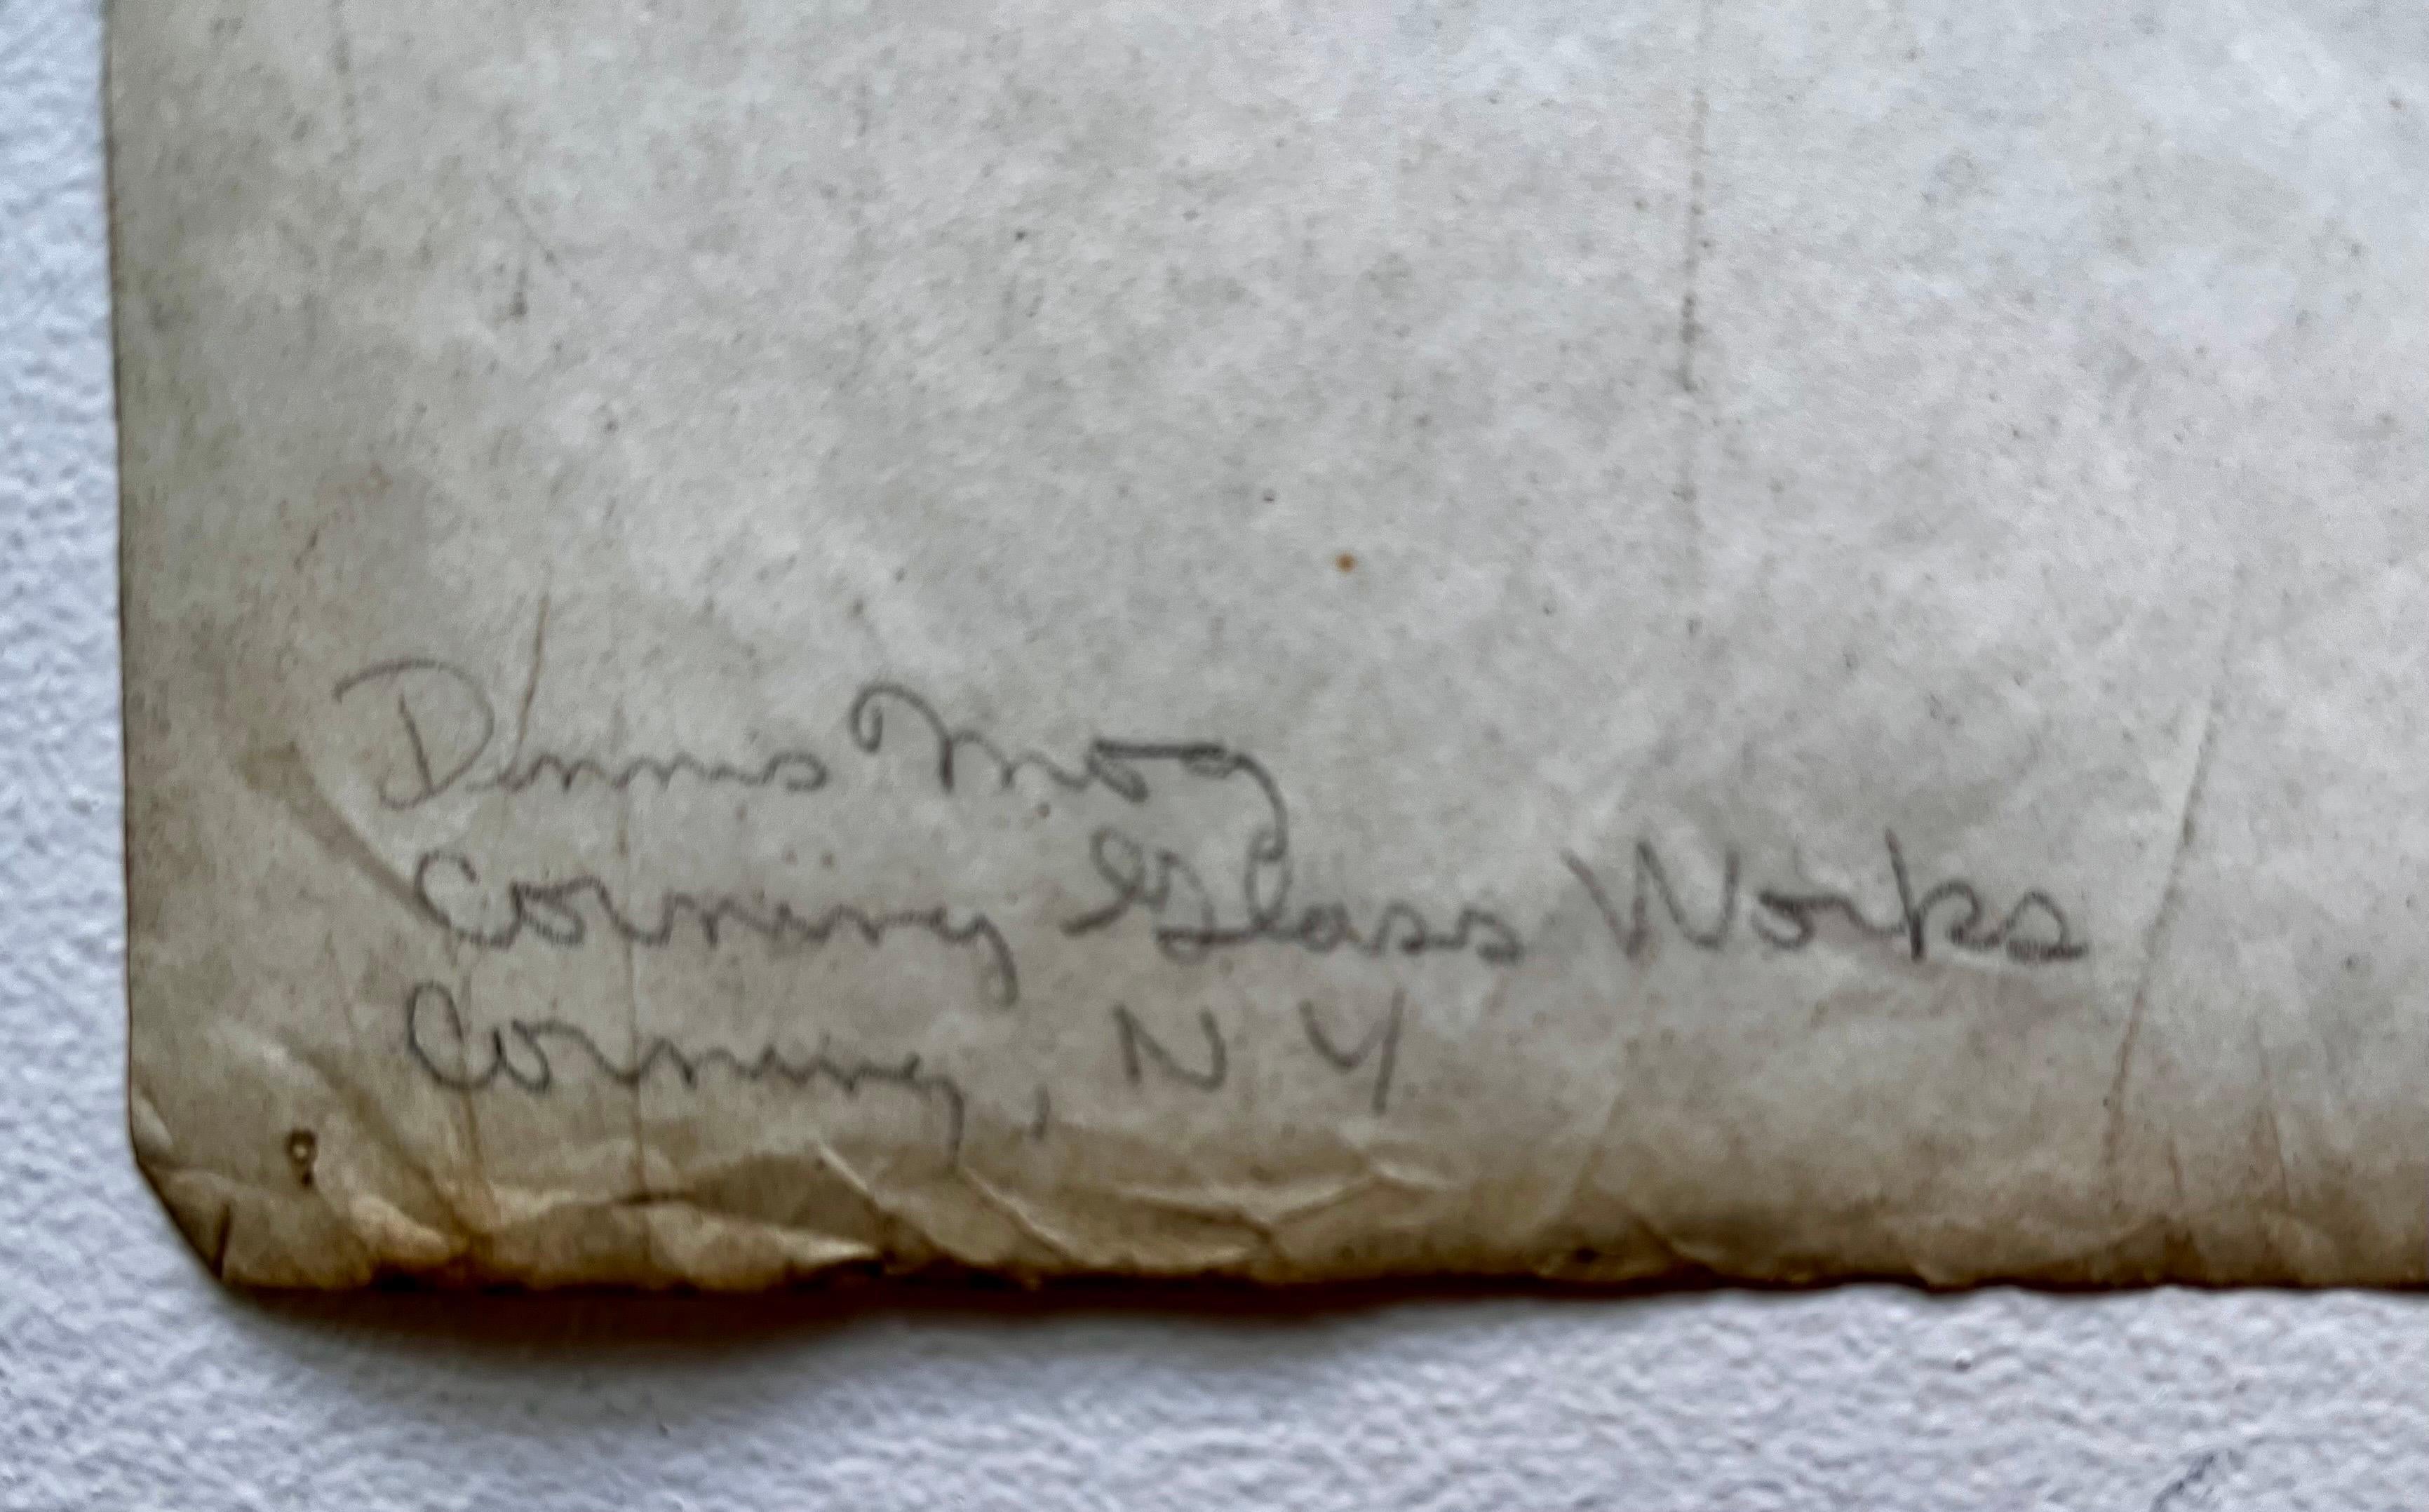 Dennis Moog
Corning Glass Works
Corning, NY